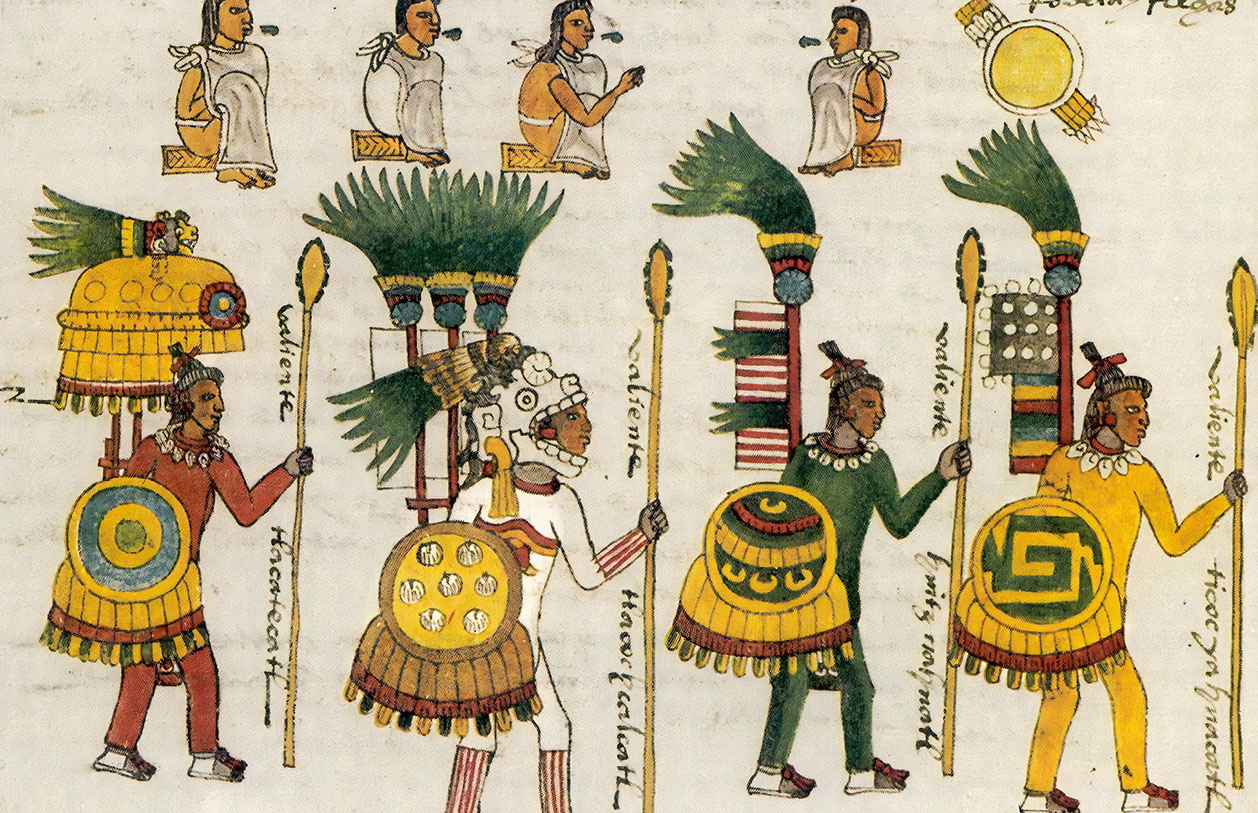 valiente
tlacatecatl
valiente
tlacochcalcatl
valiente
huitznahuatl
valiente
ticocyahuacatl